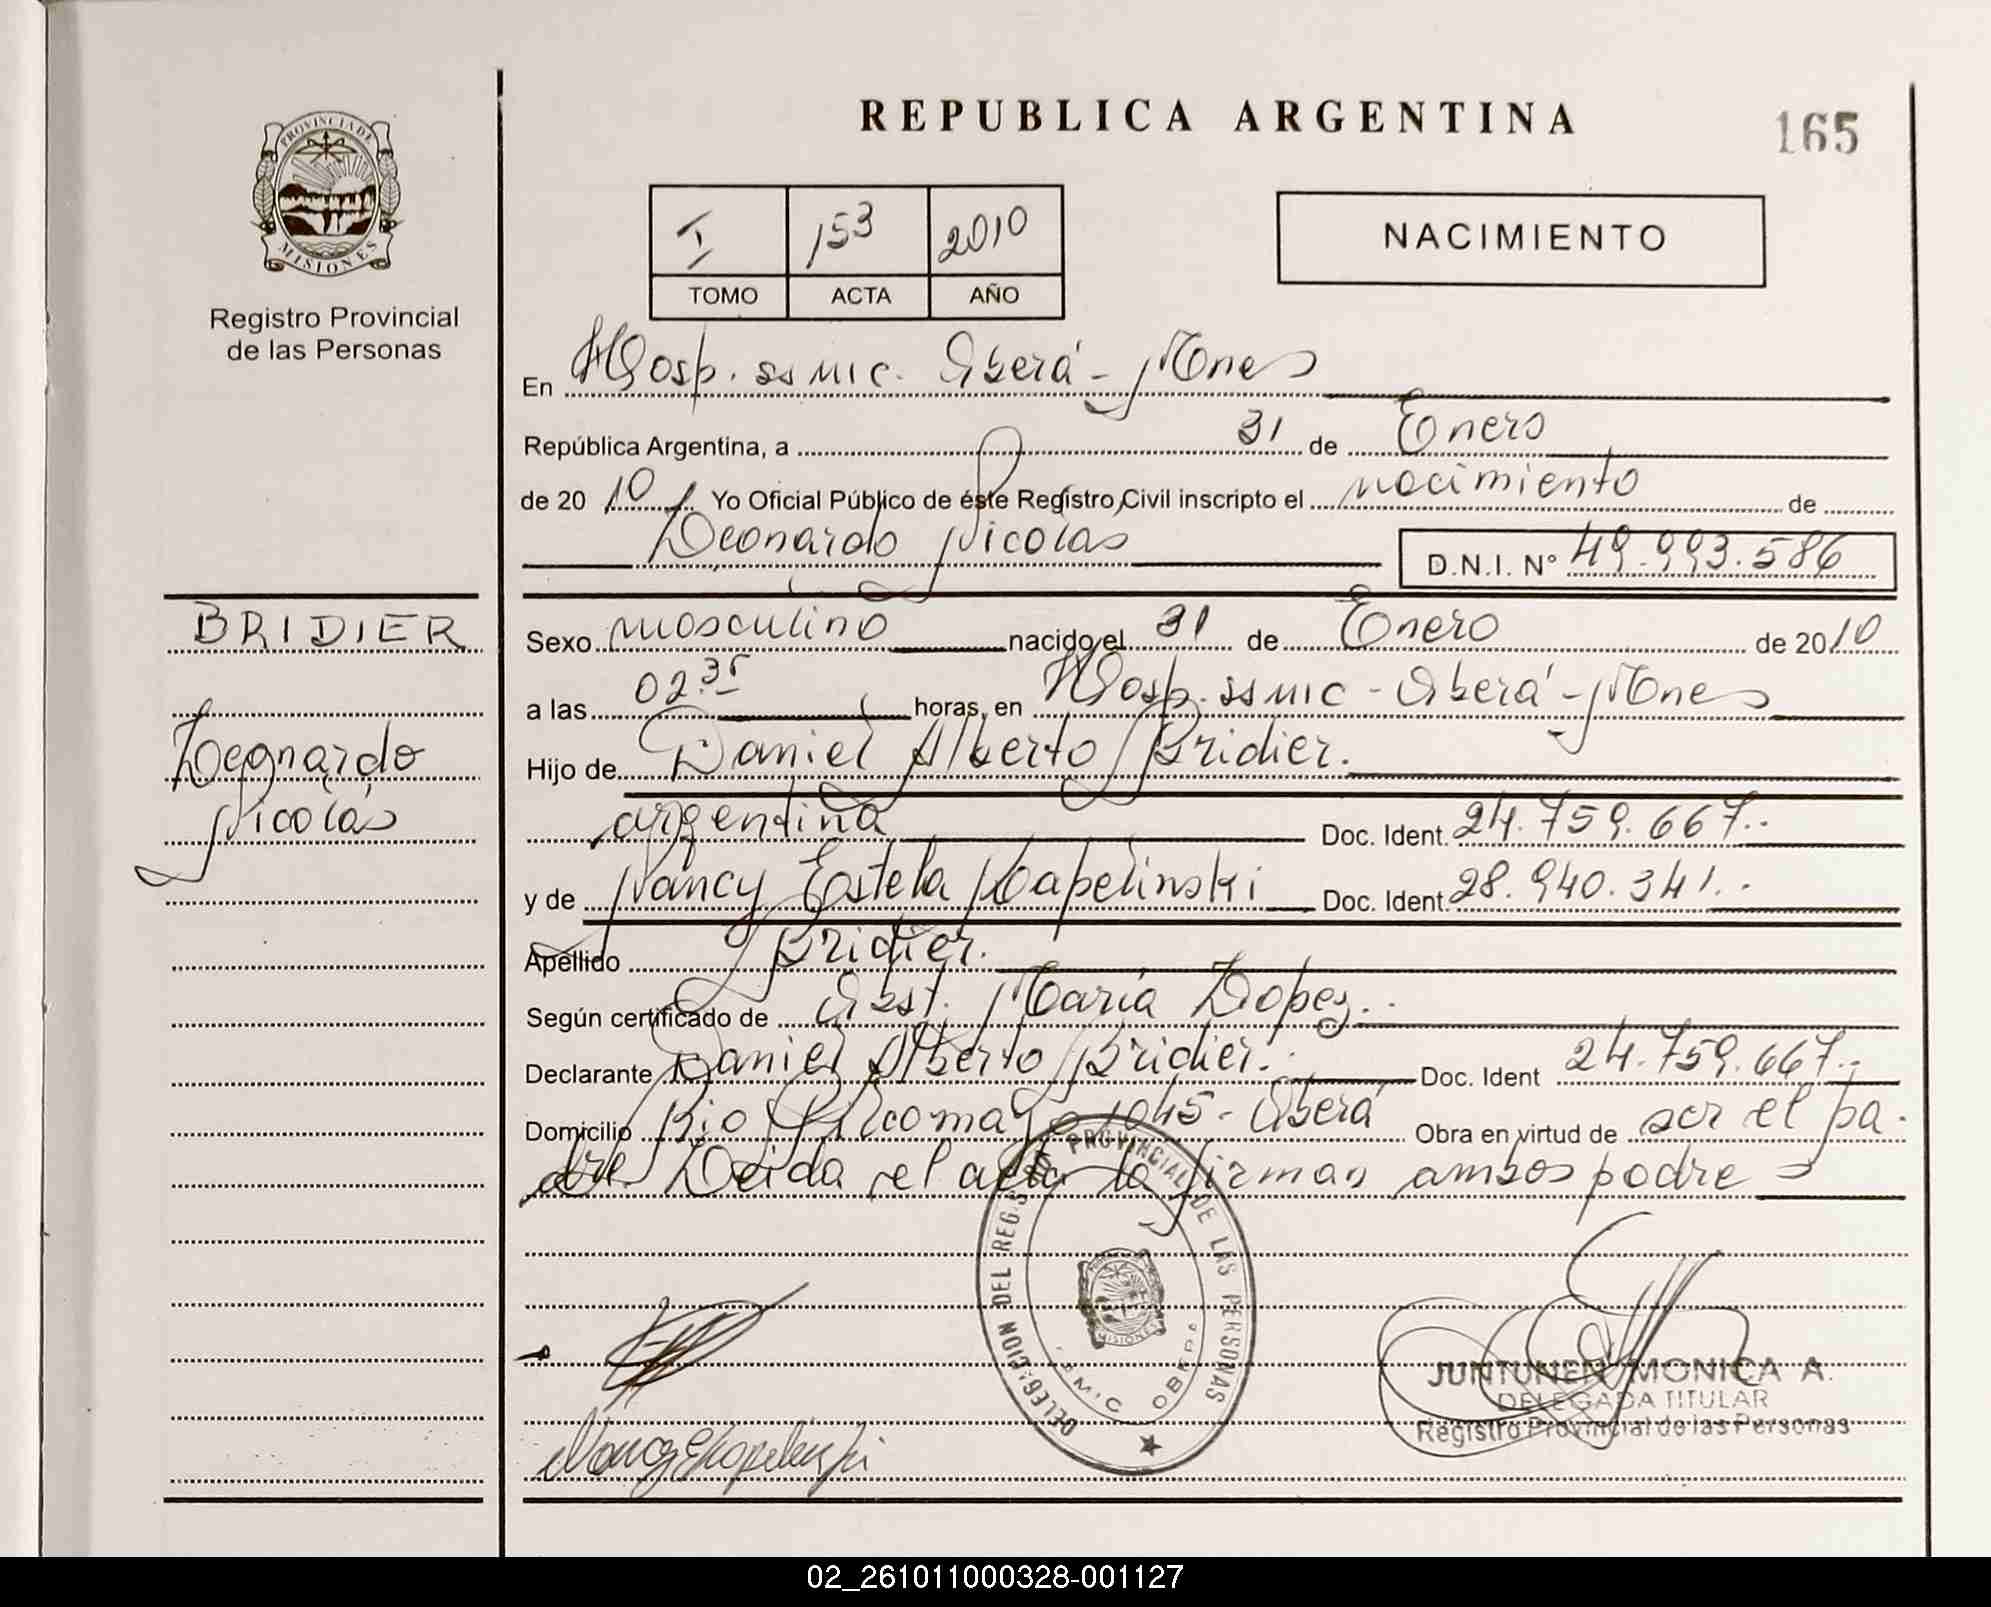 REPUBLICA ARGENTINA
165
PROVINCIA DE
MISIONES
Registro Provincial
de las Personas
I 153 2010
TOMO ACTA AÑO
NACIMIENTO
En Hosp. ss MIC. Oberá - Mnes
República Argentina, a 31 de Enero
de 2010 Yo Oficial Público de éste Registro Civil inscripto el nacimiento de
Leonardo Nicolás
D.N.I. N° 49.993.586
BRIDIER
Leonardo
Nicolás
Sexo masculino nacido el 31 de Enero de 2010
a las 02.35 horas, en Hosp. ss MIC - Oberá - Mnes
Hijo de Daniel Alberto Bridier.
argentina Doc. Ident. 24.759.667..
y de Nancy Estela Kapelinski Doc. Ident. 28.940.341..
Apellido Bridier.
Según certificado de Obst. María Lopez.
Declarante Daniel Alberto Bridier. Doc. Ident 24.759.667..
Domicilio Rio Pilcomayo 1045 - Oberá Obra en virtud de ser el pa.
dre. Leida el acta la firman ambos padres
DELEGACION DEL REGISTRO PROVINCIAL DE LAS PERSONAS
MISIONES
OBERA
JUNTUNEN MONICA A.
DELEGADA TITULAR
Registro Provincial de las Personas
Nancy E Kapelinski
02_261011000328-001127